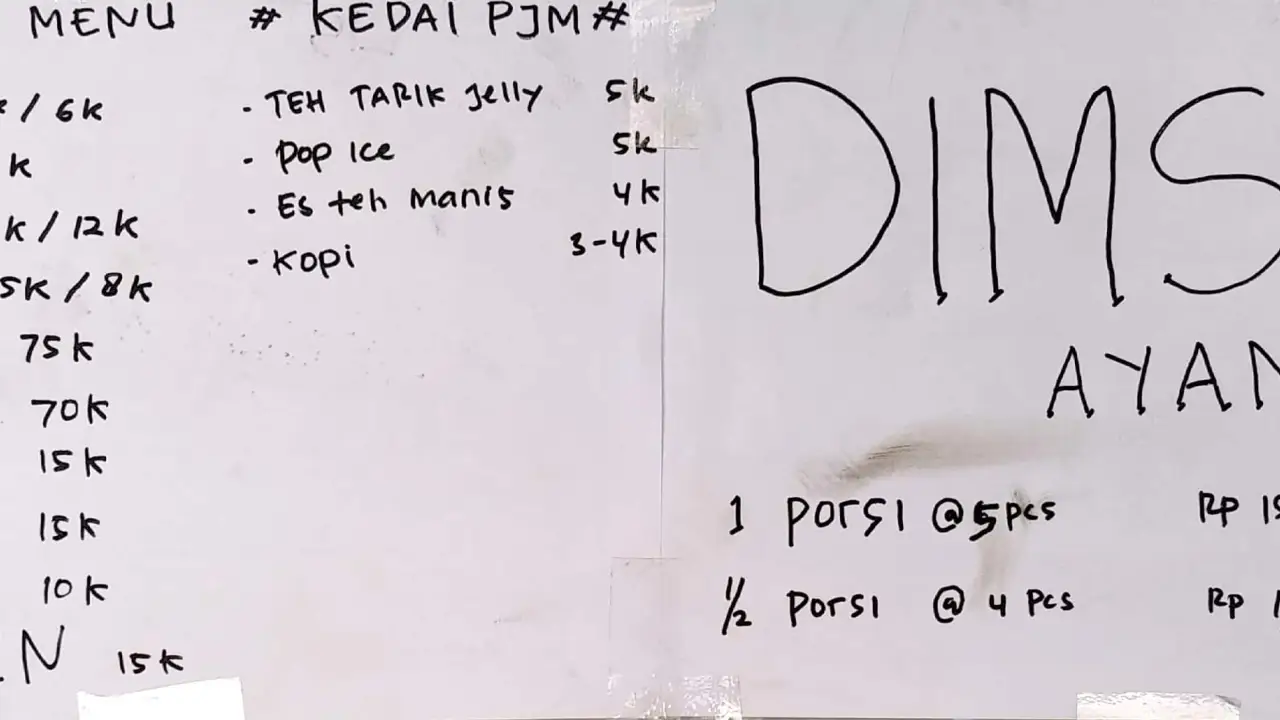 MENU # KEDAI PJM #
/ 6K
K
K / 12K
5K / 8K
75K
70K
15K
15K
10K
N 15K
- TEH TARIK Jelly 5K
- Pop Ice 5K
- Es teh manis 4K
- Kopi 3-4K
DIMS
AYAN
1 Porsi @ 5 pcs Rp 15
1/2 Porsi @ 4 pcs Rp 1